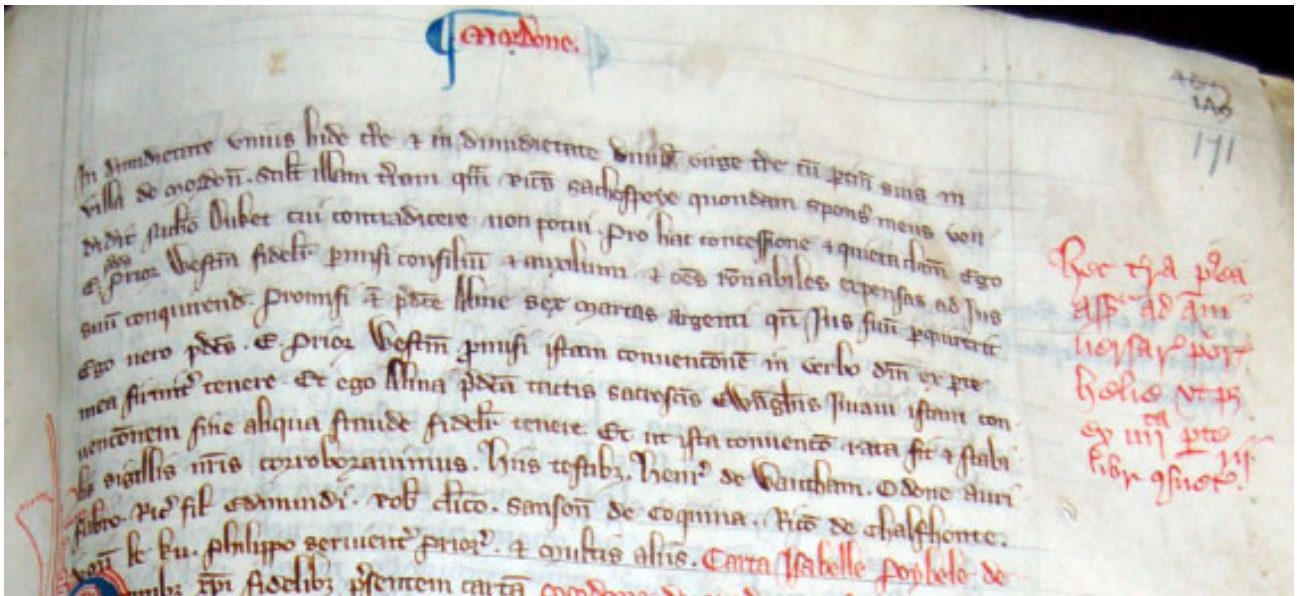 Mordone.
171
In dimidietate unius hide t're & in dimidietate dimid' virge t're cu' p'tin' suis in
villa de Mordon'. Scil't illam t'ram qm' Ric's Sachespeye quondam spons' meus ven
didit Duket cui contradicere non potui. Pro hac concessione & quieta clam' Ego
E. p'd's Prior Westm' fidelit' p'misi consiliu' & auxilium & o'es ro'nabiles expensas ad Jus
suu' conquirend'. Promisi & p'd'ce Aline sex marcas argenti qn' Jus suu' p'quisierit
Ego vero p'd'c's. E. Prior Westm' p'misi istam convenc'one' in verbo d'ni ex p'te
mea firmit' tenere. Et ego Alina p'd'c'a tactis sacros'c'is Ewang'liis Juravi istam con
venc'onem sine aliqua fraude fidelit' tenere. Et ut ista convenc'o rata sit & stabi
lis sigillis n'ris corroboravimus. Hiis testib'z. Henr' de Wautham. Odone Auri
fabro. Ric' fil' Edmundi. Rob' cl'ico. Sanson' de Coquina. Ric'o de Chalfhonte.
le ku. Philippo servient' prior'. & multis aliis. Carta Isabelle de
Omnib'z xp'i fidelib'z p'sentem carta'
Hec t'ra p'ea
ass' ad a'ni
versar' p'or'
Helie ut p'
ex iiii ta p'te